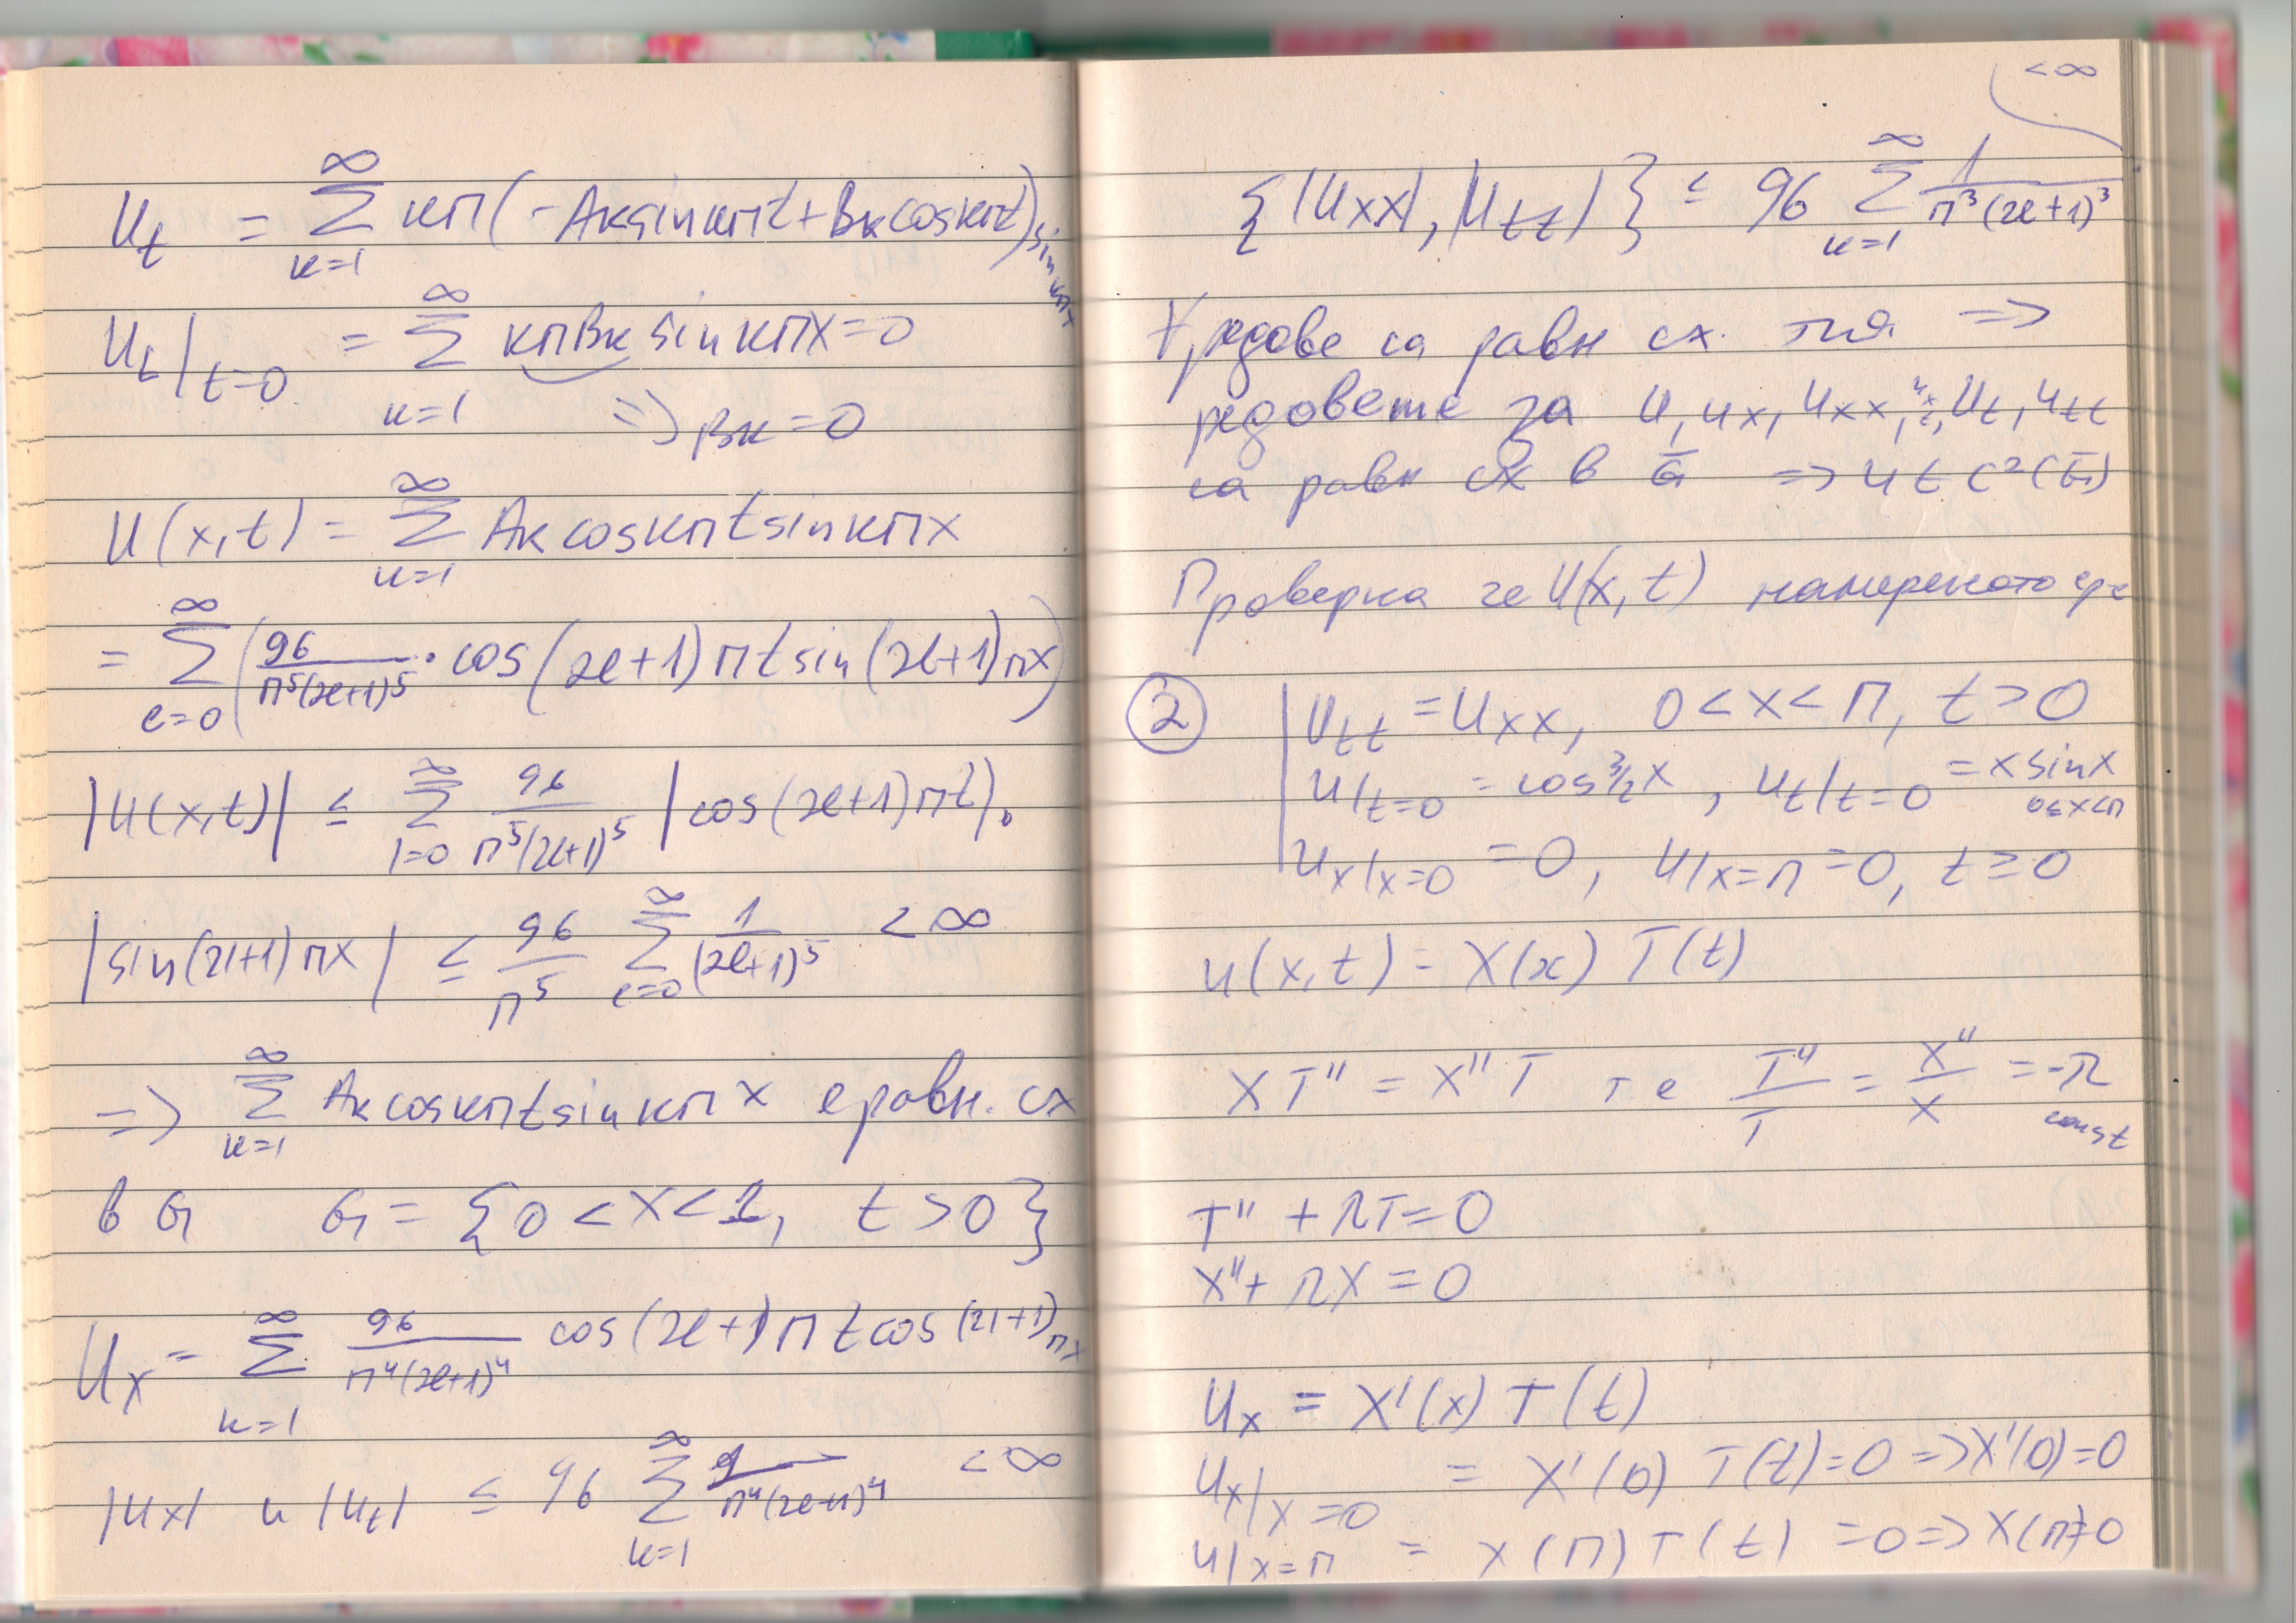 u_t = ∑_{k=1}^{∞} kπ(-A_k sin kπt + B_k cos kπt) sin kπx
u_t|_{t=0} = ∑_{k=1}^{∞} kπB_k sin kπx = 0
=> B_k = 0
u(x,t) = ∑_{k=1}^{∞} A_k cos kπt sin kπx
= ∑_{l=0}^{∞} (96/(π^5(2l+1)^5) · cos(2l+1)πt sin(2l+1)πx)
|u(x,t)| ≤ ∑_{l=0}^{∞} 96/(π^5(2l+1)^5) |cos(2l+1)πt|.
|sin(2l+1)πx| ≤ 96/π^5 ∑_{l=0}^{∞} 1/(2l+1)^5 < ∞
=> ∑_{k=1}^{∞} A_k cos kπt sin kπx е равн. сх
в G G = {0 < x < 1, t > 0}
u_x = ∑_{k=1}^{∞} 96/(π^4(2l+1)^4) cos(2l+1)πt cos(2l+1)πx
|u_x| и |u_t| ≤ 96 ∑_{k=1}^{∞} 1/(π^4(2l+1)^4) < ∞
< ∞
{|u_xx|, |u_tt|} ≤ 96 ∑_{k=1}^{∞} 1/(π^3(2l+1)^3)
∀ редове са равн сх. тия =>
редовете за u, u_x, u_xx, u_t, u_tt
са равн сх в G̅ => u ∈ C²(G̅)
Проверка че u(x,t) намереното
② | u_tt = u_xx, 0 < x < π, t > 0
u|_{t=0} = cos 3/2 x, u_t|_{t=0} = x sin x
0≤x≤π
u_x|_{x=0} = 0, u|_{x=π} = 0, t ≥ 0
u(x,t) = X(x) T(t)
XT'' = X''T т е T''/T = X''/X = -λ
const
T'' + λT = 0
X'' + λX = 0
u_x = X'(x) T(t)
u_x|_{x=0} = X'(0) T(t) = 0 => X'(0) = 0
u|_{x=π} = X(π) T(t) = 0 => X(π) = 0